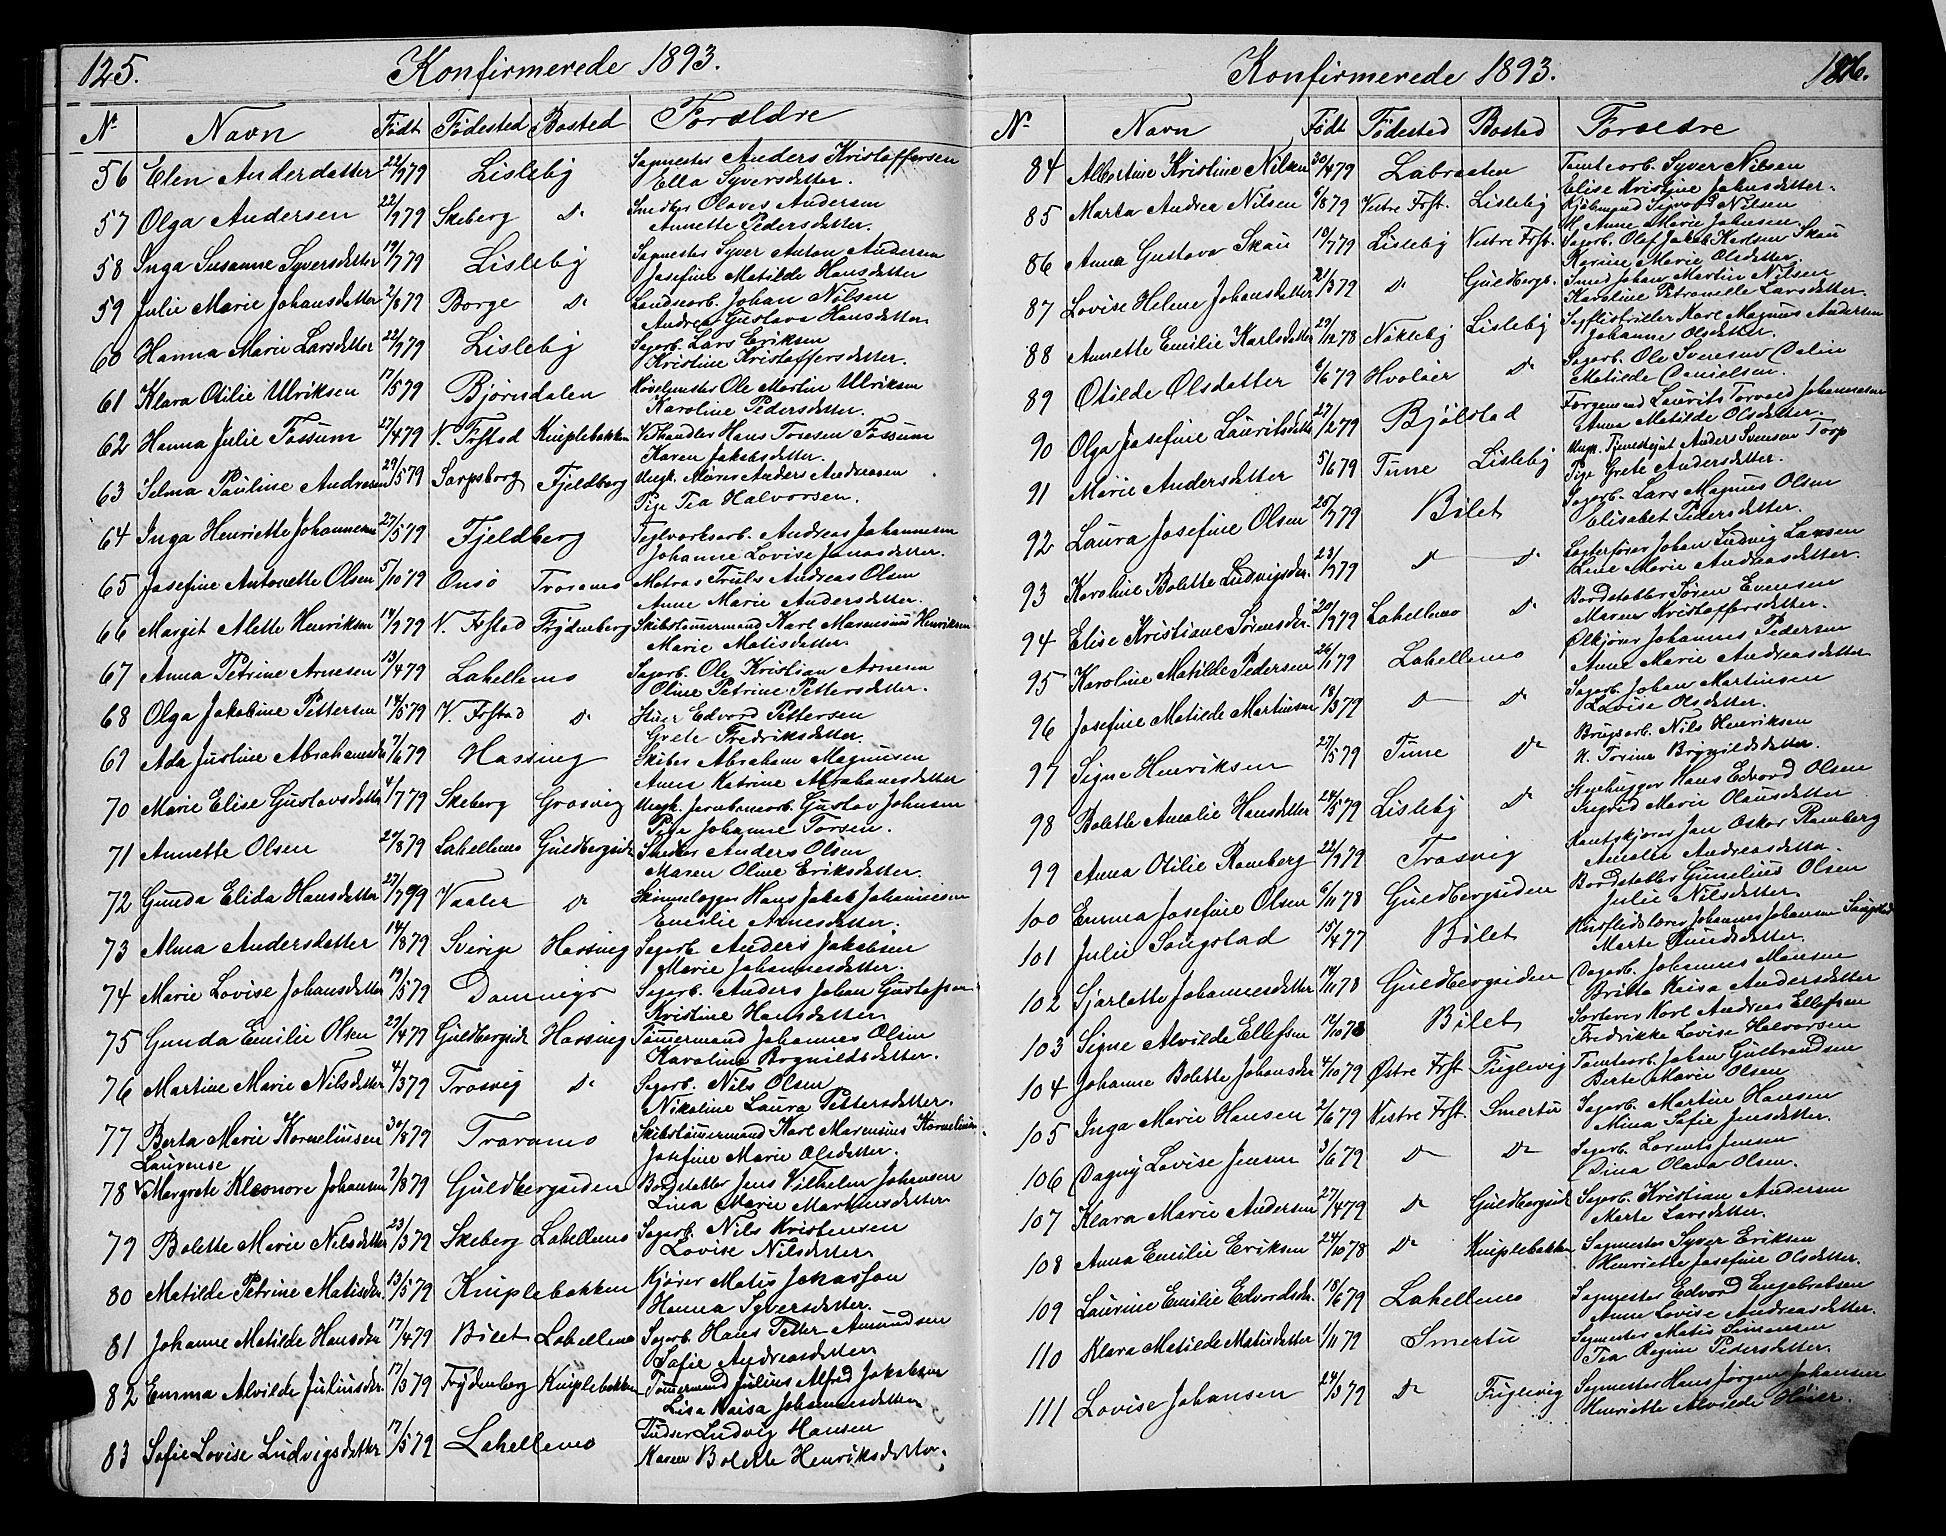 125.
Konfirmerede 1893.
No Navn Født Fødested Bosted Forældre
56 Elen Andersdatter 22/9 79 Lisleby Sagmester Anders Kristoffersen
Ella Syversdatter.
57 Olga Andersen 22/9 79 Skeberg do Smedbr Olaves Andersen
Annette Pedersdatter.
58 Inga Susanne Syversdatter 19/7 79 Lisleby Sagmester Syver Anton Andersen
Josefine Matilde Hansdatter
59 Julie Marie Johansdatter 2/8 79 Borge do Johan Nilsen
Andrea Gustava Hansdatter
60 Hanna Marie Larsdatter 22/9 79 Lisleby Sagarb. Lars Eriksen
Kristine Kristoffersdatter.
61 Klara Otilie Ulriksen 17/5 79 Bjørndalen Høvelmester Ole Martin Ulriksen
Karoline Pedersdatter.
62 Hanna Julie Fossum 27/4 79 V. Frstad Kniplebakken Hans Toresen Fossum
Karen Jakobsdatter.
63 Selma Pauline Andresen 29/5 79 Sarpsborg Fjeldberg Ungk. Murer Anders Andreasen
Pige Tea Halvorsen.
64 Inga Henriette Johannesen 27/5 79 Fjeldberg Teglverksarb. Andreas Johannesen
Johanne Lovise Jonasdatter.
65 Josefine Antonette Olsen 5/10 79 Onsø Trosvik Matros Truls Andreas Olsen
Anne Marie Andersdatter.
66 Margit Alette Henriksen 14/9 79 V. Frstad Frydenberg Skibstømermand Karl Marensius Henriksen
Marie Matisdatter.
67 Anna Petrine Arnesen 13/4 79 Lahellemo Sagarb. Ole Kristian Arnesen
Oline Petrine Pettersdatter.
68 Olga Jakobine Pettersen 14/5 79 V. Frstad do Edvard Pettersen
Grete Fredriksdatter.
69 Ada Justine Abrahamsdr 7/6 79 Hassing Skiber Abraham Magnusen
Anne Katrine Abrahamsdatter
70 Marie Elise Gustavsdatter 4/7 79 Skeberg Grosvig Ungk. Jernbanearb. Gustav Johnsen
Pige Johanne Torsen.
71 Annette Olsen 27/8 79 Lahellemo Guldbergsid Anders Olsen
Maren Oline Eriksdatter.
72 Gunda Elida Hansdatter 27/7 79 Vaaler do Hans Jakob Johannesen
Emilie Arnesdatter.
73 Alma Andersdatter 14/8 79 Sverige Hassing Sagarb. Anders Jakobsen
Marie Johannesdatter.
74 Marie Lovise Johansdatter 19/5 79 Damvigs Sagarb. Anders Johan Gustafsen
Kristine Hansdatter
75 Gunda Emilie Olsen 29/4 79 Guldbergsid Hassing Tømermand Johannes Olsen
Karoline Bognildsdatter.
76 Martine Marie Nilsdatter 4/3 79 Trosvig do Sagarb. Nils Olsen
Nikoline Laura Pettersdatter.
77 Berta Marie Korneliusen 30/8 79 Travamo Skibstømermand Karl Marensius Korneliusen
Josefine Marie Olsdatter.
Laurense
78 Margrete Kleonore Johansen 7/8 79 Guldbergsiden Bordstabler Jens Vilhelm Johansen
Lina Marie Martinusdatter
79 Bolette Marie Nilsdatter 23/3 79 Skeberg Lahellemo Sagarb. Nils Kristensen
Lovise Nilsdatter
80 Matilde Petrine Matisdr. 13/5 79 Kniplebakken Kjører Matis Jonasson
Hanna Syversdatter.
81 Johanne Matilde Hansdr 17/4 79 Bilet Lahellemo Sagarb. Hans Petter Amundsen
Sofie Andreasdatter
82 Emma Alvilde Juliusdr. 17/3 79 Frydenberg Kniplebakken Tømermand Julius Alfred Jakobsen
Lisa Kaisa Johannesdatter
83 Sofie Lovise Ludvigsdatter 17/5 79 Lahellemo Ludvig Hansen
Karen Bolette Henriksdatter.
Konfirmerede 1893.
126.
No Navn Født Fødested Bosted Forældre
84 Albertine Kristine Nilsen 30/4 79 Labraaten Tomtearb. Syver Nilsen
Elise Kristine Johnsdatter.
85 Marta Andrea Nilsen 6/8 79 Vestre Frst. Lisleby Kjøbmand Sigvard Nilsen
H. Anne Marie Johnsen
86 Anna Gustava Skau 10/7 79 Lisleby Vestre Frst. Sagarb. Olaf Jakob Karlsen Skau
Karine Marie Olsdatter.
87 Lovise Helene Johansdatter 21/3 79 do Guldbergs. Smed Johan Martin Nilsen
Karoline Petronelle Larsdatter.
88 Annette Emilie Karlsdatter 29/12 78 Nokleby Lisleby Karl Magnus Andersen
Johanne Olsdatter.
89 Otilde Olsdatter 6/6 79 Hvaløer do Sagarb. Ole Svensen Dalin
Matilde Danielsen.
90 Olga Josefine Lauritsdatter 27/12 79 Bjølstad Færgemand Laurits Torvald Johannesen
Anna Matilde Olsdatter.
91 Marie Andersdatter 5/6 79 Tune Lisleby Ungk. Anders Svenson Torp
Pige Grete Andersdatter.
92 Laura Josefine Olsen 25/7 79 Bilet Sagarb. Lars Magnus Olsen
Elisabet Pedersdatter.
93 Karoline Bolette Ludvigsdr. 23/7 79 do do Johan Ludvig Larsen
Lene Marie Andreasdatter.
94 Elise Kristiane Sørensdr. 20/9 79 Lahellemo do Bordstabler Søren Evensen
Maren Kristoffersdatter.
95 Karoline Matilde Pedersen 26/1 79 Lahellemo Ølkjører Johannes Pedersen
Anne Marie Andreasdatter
96 Josefine Matilde Martinsen 18/3 79 do do Sagarb. Johan Martinsen
Lovise Olsdatter.
97 Signe Henriksen 27/5 79 Tune do Brugsarb. Nils Henriksen
K. Torine Brynildsdatter.
98 Bolette Amalie Hansdatter 24/5 79 Lisleby do Hans Edvard Olsen
Ingrid Marie Olausdatter
99 Anna Otilie Ramberg 22/9 79 Trosvig Kantskjører Jan Oskar Ramberg
Amalie Andreasdatter.
100 Emma Josefine Olsen 6/11 78 Guldbergsiden Bordstabler Gunelius Olsen
Julie Nilsdatter.
101 Julie Saugstad 15/4 77 Bilet Johannes Johansen Saugstad
Marte Knudsdatter.
102 Sjarlotte Johannesdatter 14/11 78 Guldbergsiden Dagarb. Johannes Monsen
Britta Kaisa Andersdatter
103 Signe Alvilde Ellefsen 12/10 78 Bilet Sorterer Karl Andreas Ellefsen
Fredrikke Lovise Halvorsen
104 Johanne Bolette Johansdr 4/10 79 Østre Frst Fuglevig Tomtearb. Johan Gulbrandsen
Berte Marie Olsen
105 Inga Marie Hansen 2/6 79 Vestre Frst. Smertu Sagarb. Martin Hansen
Mina Sofie Jensdatter.
106 Dagny Lovise Jensen 3/6 79 do do Sagarb. Lorents Jensen
Dina Olava Olsen.
107 Klara Marie Andersen 27/4 79 do Guldbergsid Sagarb. Kristian Andersen
Marte Larsdatter.
108 Anna Emilie Eriksen 24/10 78 do Kniplebakken Sagmester Syver Eriksen
Henriette Josefine Olsdatter.
109 Laurine Emilie Edvardsdr. 18/6 79 Lahellemo Sagmester Edvard Engebretsen
Anne Lovise Andreasdatter.
110 Klara Matilde Matisdatter 1/11 79 Smertu Sagmester Matis Simensen
Tea Regine Pedersdatter.
111 Lovise Johansen 24/3 79 do Fuglevig Sagmester Hans Jørgen Johansen
Henriette Alvilde Høier.